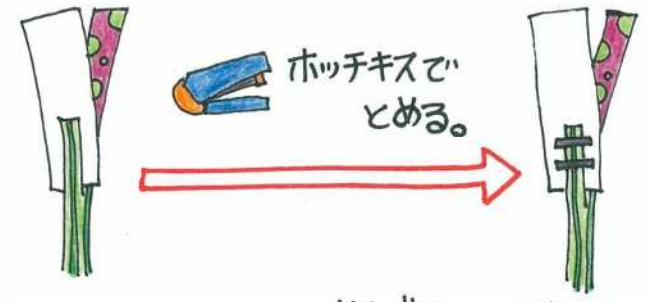 ホッチキスで
とめる。